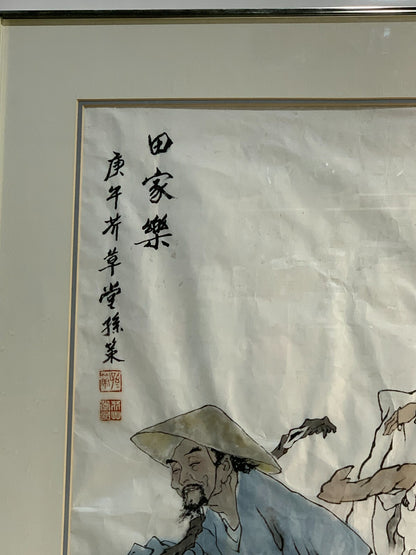 田家樂
庚午芥草堂孫策